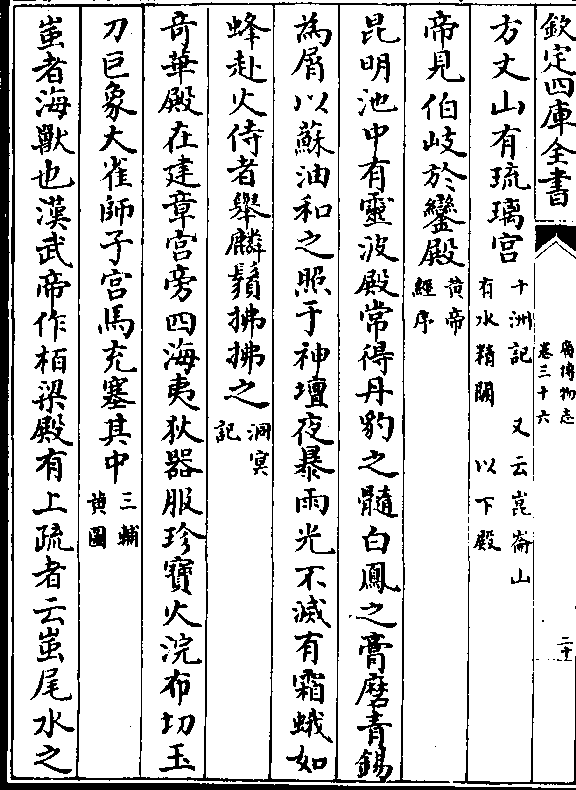 欽定四庫全書
廣博物志
卷三十六
二十
方丈山有琉璃宫
十洲記 又云崑崙山
有水精闕 以下殿
帝見伯岐於鑾殿
黄帝
經序
昆明池中有靈波殿常得丹豹之髓白鳳之膏磨青錫
為屑以蘇油和之照于神壇夜暴雨光不滅有霜蛾如
蜂赴火侍者舉麟鬚拂拂之
洞冥
記
奇華殿在建章宫旁四海夷狄器服珍寶火浣布切玉
刀巨象大雀師子宫馬充塞其中
三輔
黄圖
蚩者海獸也漢武帝作栢梁殿有上疏者云蚩尾水之